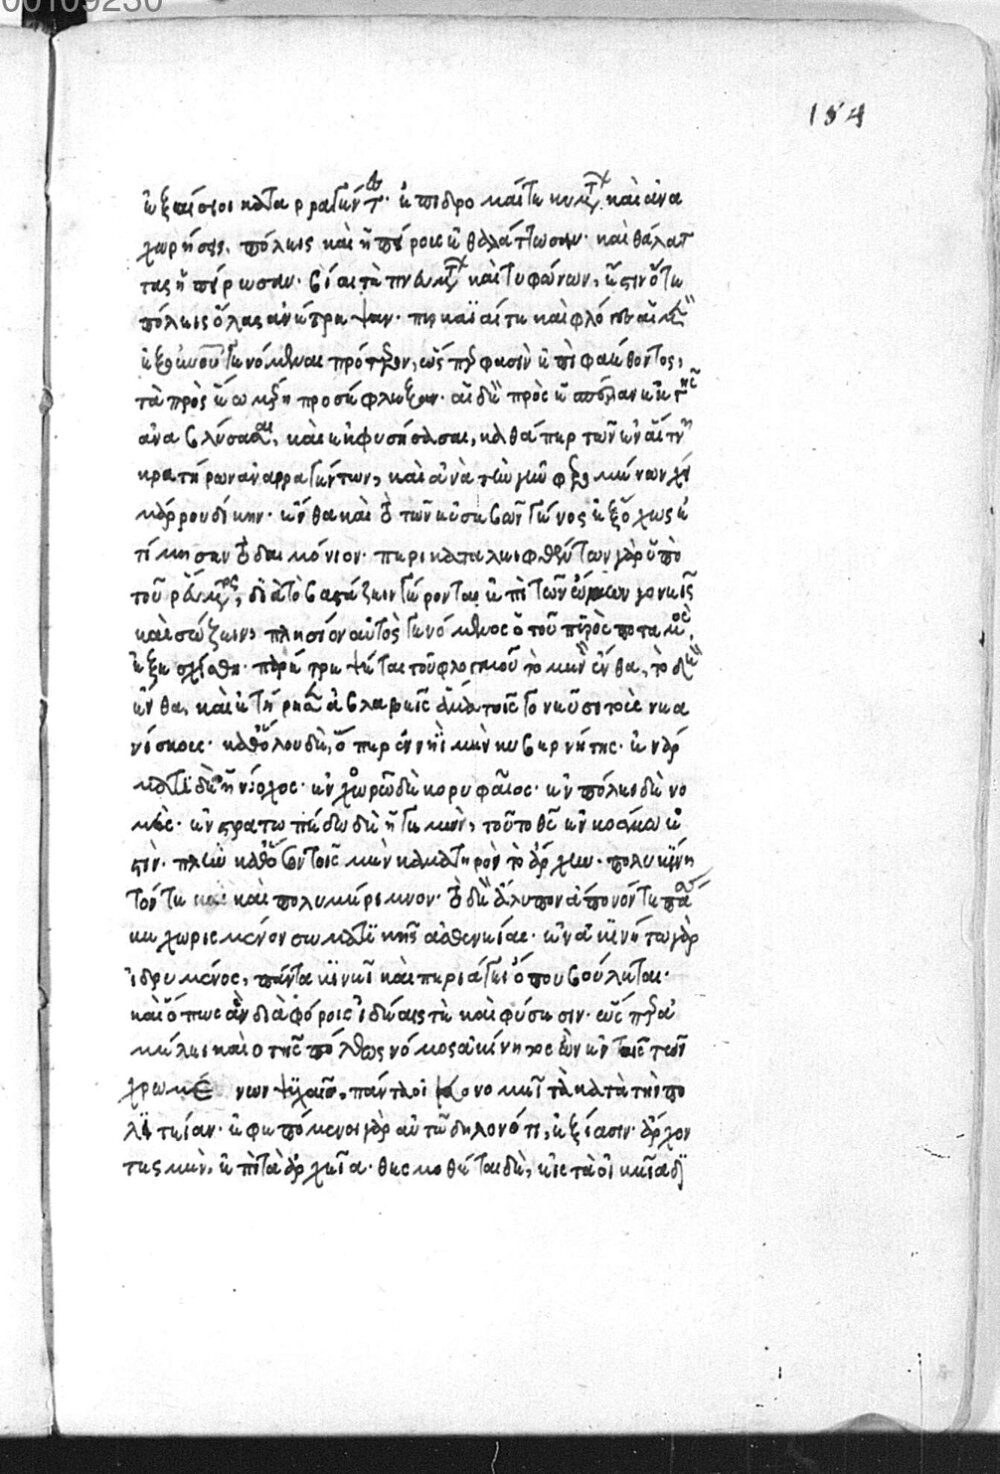 ἐξαίσιοι καταρραγέντων· ἐπιδρομαί τε κυμάτων καὶ ἀνα
χωρήσεις, πόλεις καὶ ἠπείροις ἐθαλάττωσαν· καὶ θαλάτ
τας ἠπείρωσαν· βίαι τὲ πνευμάτων καὶ τυφώνων, ἔστιν ὅτε
πόλεις ὅλας ἀνέτρεψαν· πυρκαϊαί τε καὶ φλόγες αἱ μὲν
ἐξ οὐρανοῦ γενόμεναι πρότερον, ὥσπερ φασὶν ἐπὶ φαέθοντος,
τὰ πρὸς ἕω μέρη προσέφλεξαν· αἱ δὲ πρὸς ἑσπέραν ἐκ γῆς
ἀναβλύσασαι, καὶ ἐκφυσήσασαι, καθάπερ τῶν ἐν αἴτνῃ
κρατήρων ἀναρραγέντων, καὶ ἀνὰ τὴν γῆν φερομένων χει
μάρρου δίκην· ἔνθα καὶ τὸ τῶν εὐσεβῶν γένος ἐξόχως ἐ
τίμησαν τὸ δαιμόνιον· περικαταλειφθέντων γὰρ ὑπὸ
τοῦ ῥεύματος, διὰ τὸ βαστάζειν γέροντας ἐπὶ τῶν ὤμων γονεῖς
καὶ σώζειν, πλησίον αὐτὸς γενόμενος ὁ τοῦ πυρὸς ποταμὸς,
ἐξεσχίσθη· παρέτρεψέ τε τοῦ φλογμοῦ τὸ μὲν ἔνθα, τὸ δὲ
ἔνθα, καὶ ἐτήρησεν ἀβλαβεῖς ἅμα τοῖς γονεῦσι τοὺς νεα
νίσκους· καθόλου δὲ, ὅπερ ἐν νηῒ μὲν κυβερνήτης· ἐν ἅρ
ματι δὲ ἡνίοχος· ἐν χορῷ δὲ κορυφαῖος· ἐν πόλει δὲ νό
μος· ἐν στρατοπέδω δὲ ἡγεμὼν, τοῦτο θεὸς ἐν κόσμω ἐ
στὶν· πλὴν καθόσον τοῖς μὲν καματηρὸν τὸ ἄρχειν· πολυκίνη
τόν τε καὶ πολυμέριμνον· τῷ δὲ ἄλυπον ἄπονόν τε πά
σης κεχωρισμένον σωματικῆς ἀσθενείας· ἐν ἀκινήτω γὰρ
ἱδρυμένος, πάντα κινεῖ καὶ περιάγει ὅπου βούλεται·
καὶ ὅπως ἐν διαφόροις ἰδέαις τὲ καὶ φύσεσιν· ὥσπερ ἀ
μέλει καὶ ὁ τῆς πόλεως νόμος ἀκίνητος ὢν ἐν ταῖς τῶν
χρωμένων ψυχαῖς, πάντα οἰκονομεῖ τὰ κατὰ τὴν πο
λιτείαν· ἐφεπόμενοι γὰρ αὐτῷ δηλονότι, ἐξίασιν· ἄρχον
τες μὲν, ἐπὶ τὰ ἀρχεῖα· θεσμοθέται δὲ, εἰς τὰ οἰκεῖα δι